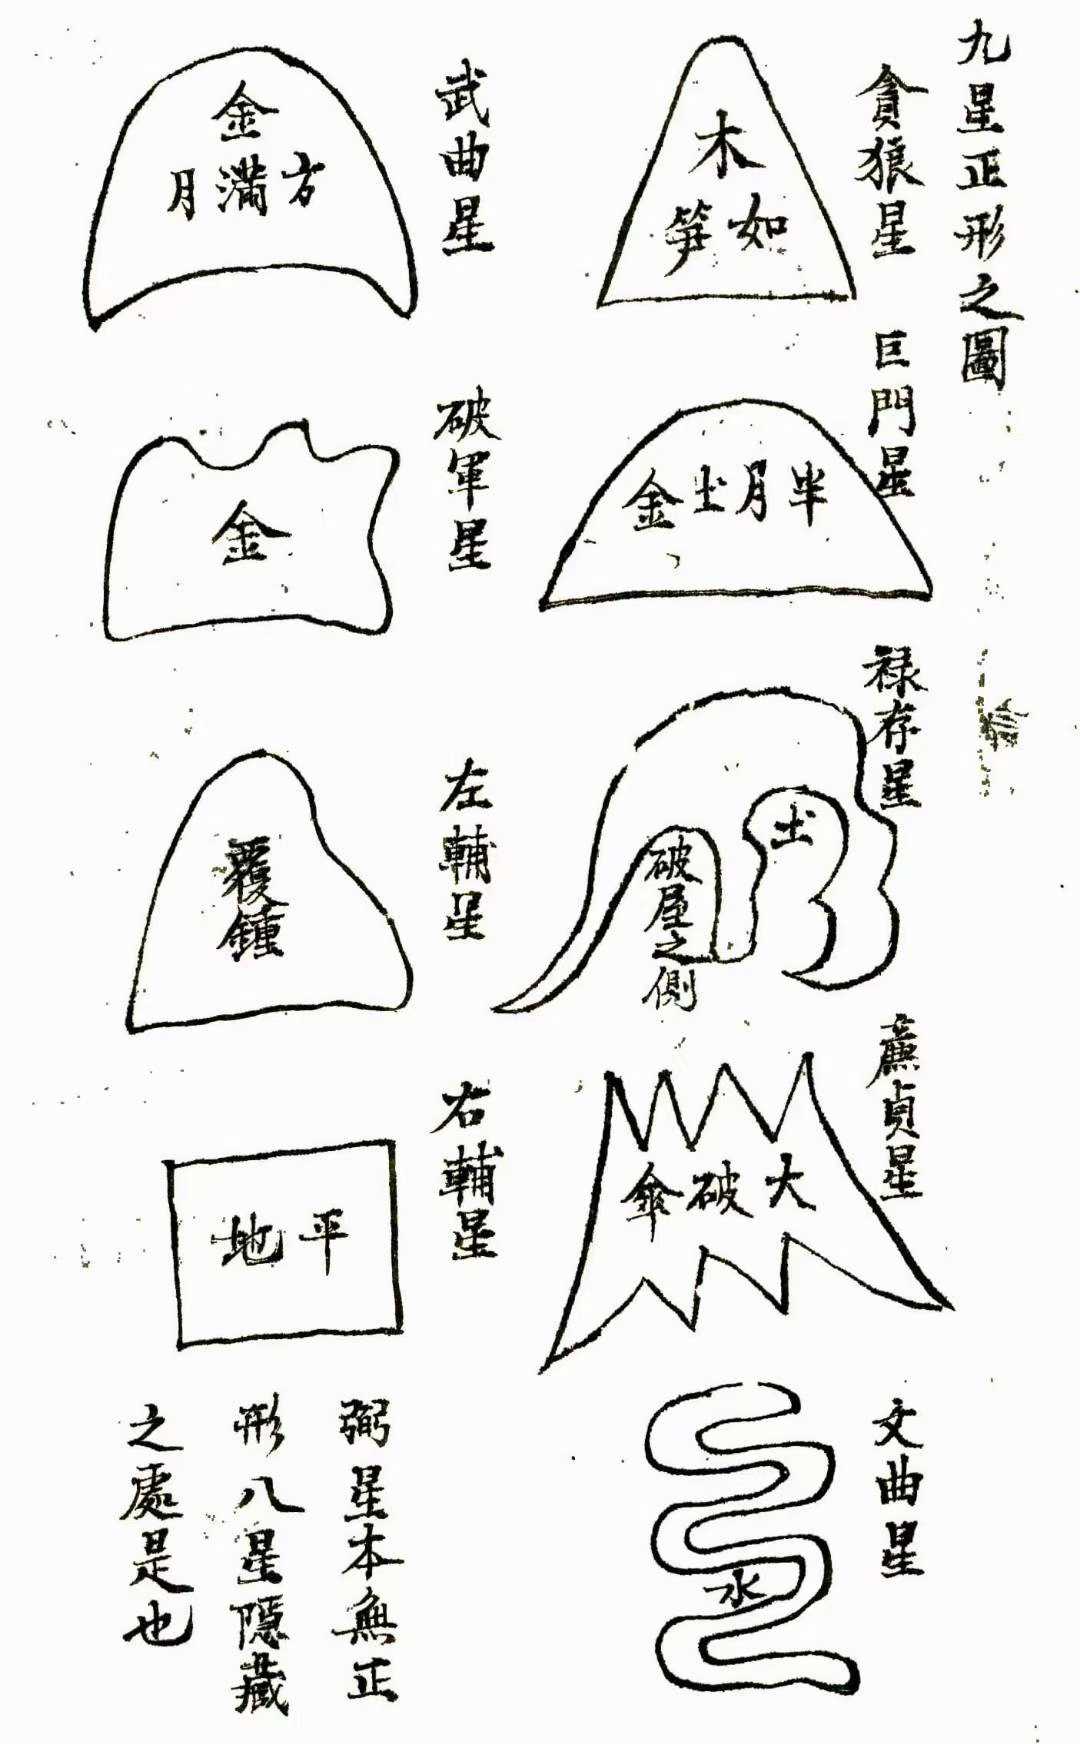 九星正形之圖
貪狼星
木
如笋
巨門星
半月土金
禄存星
土
破屋之側
廉貞星
大破傘
文曲星
水
武曲星
金
方滿月
破軍星
金
左輔星
覆鍾
右輔星
平地
弼星本無正
形八星隱藏
之處是也